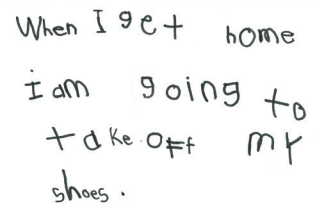 When I get home
i am going to
take off my
shoes.